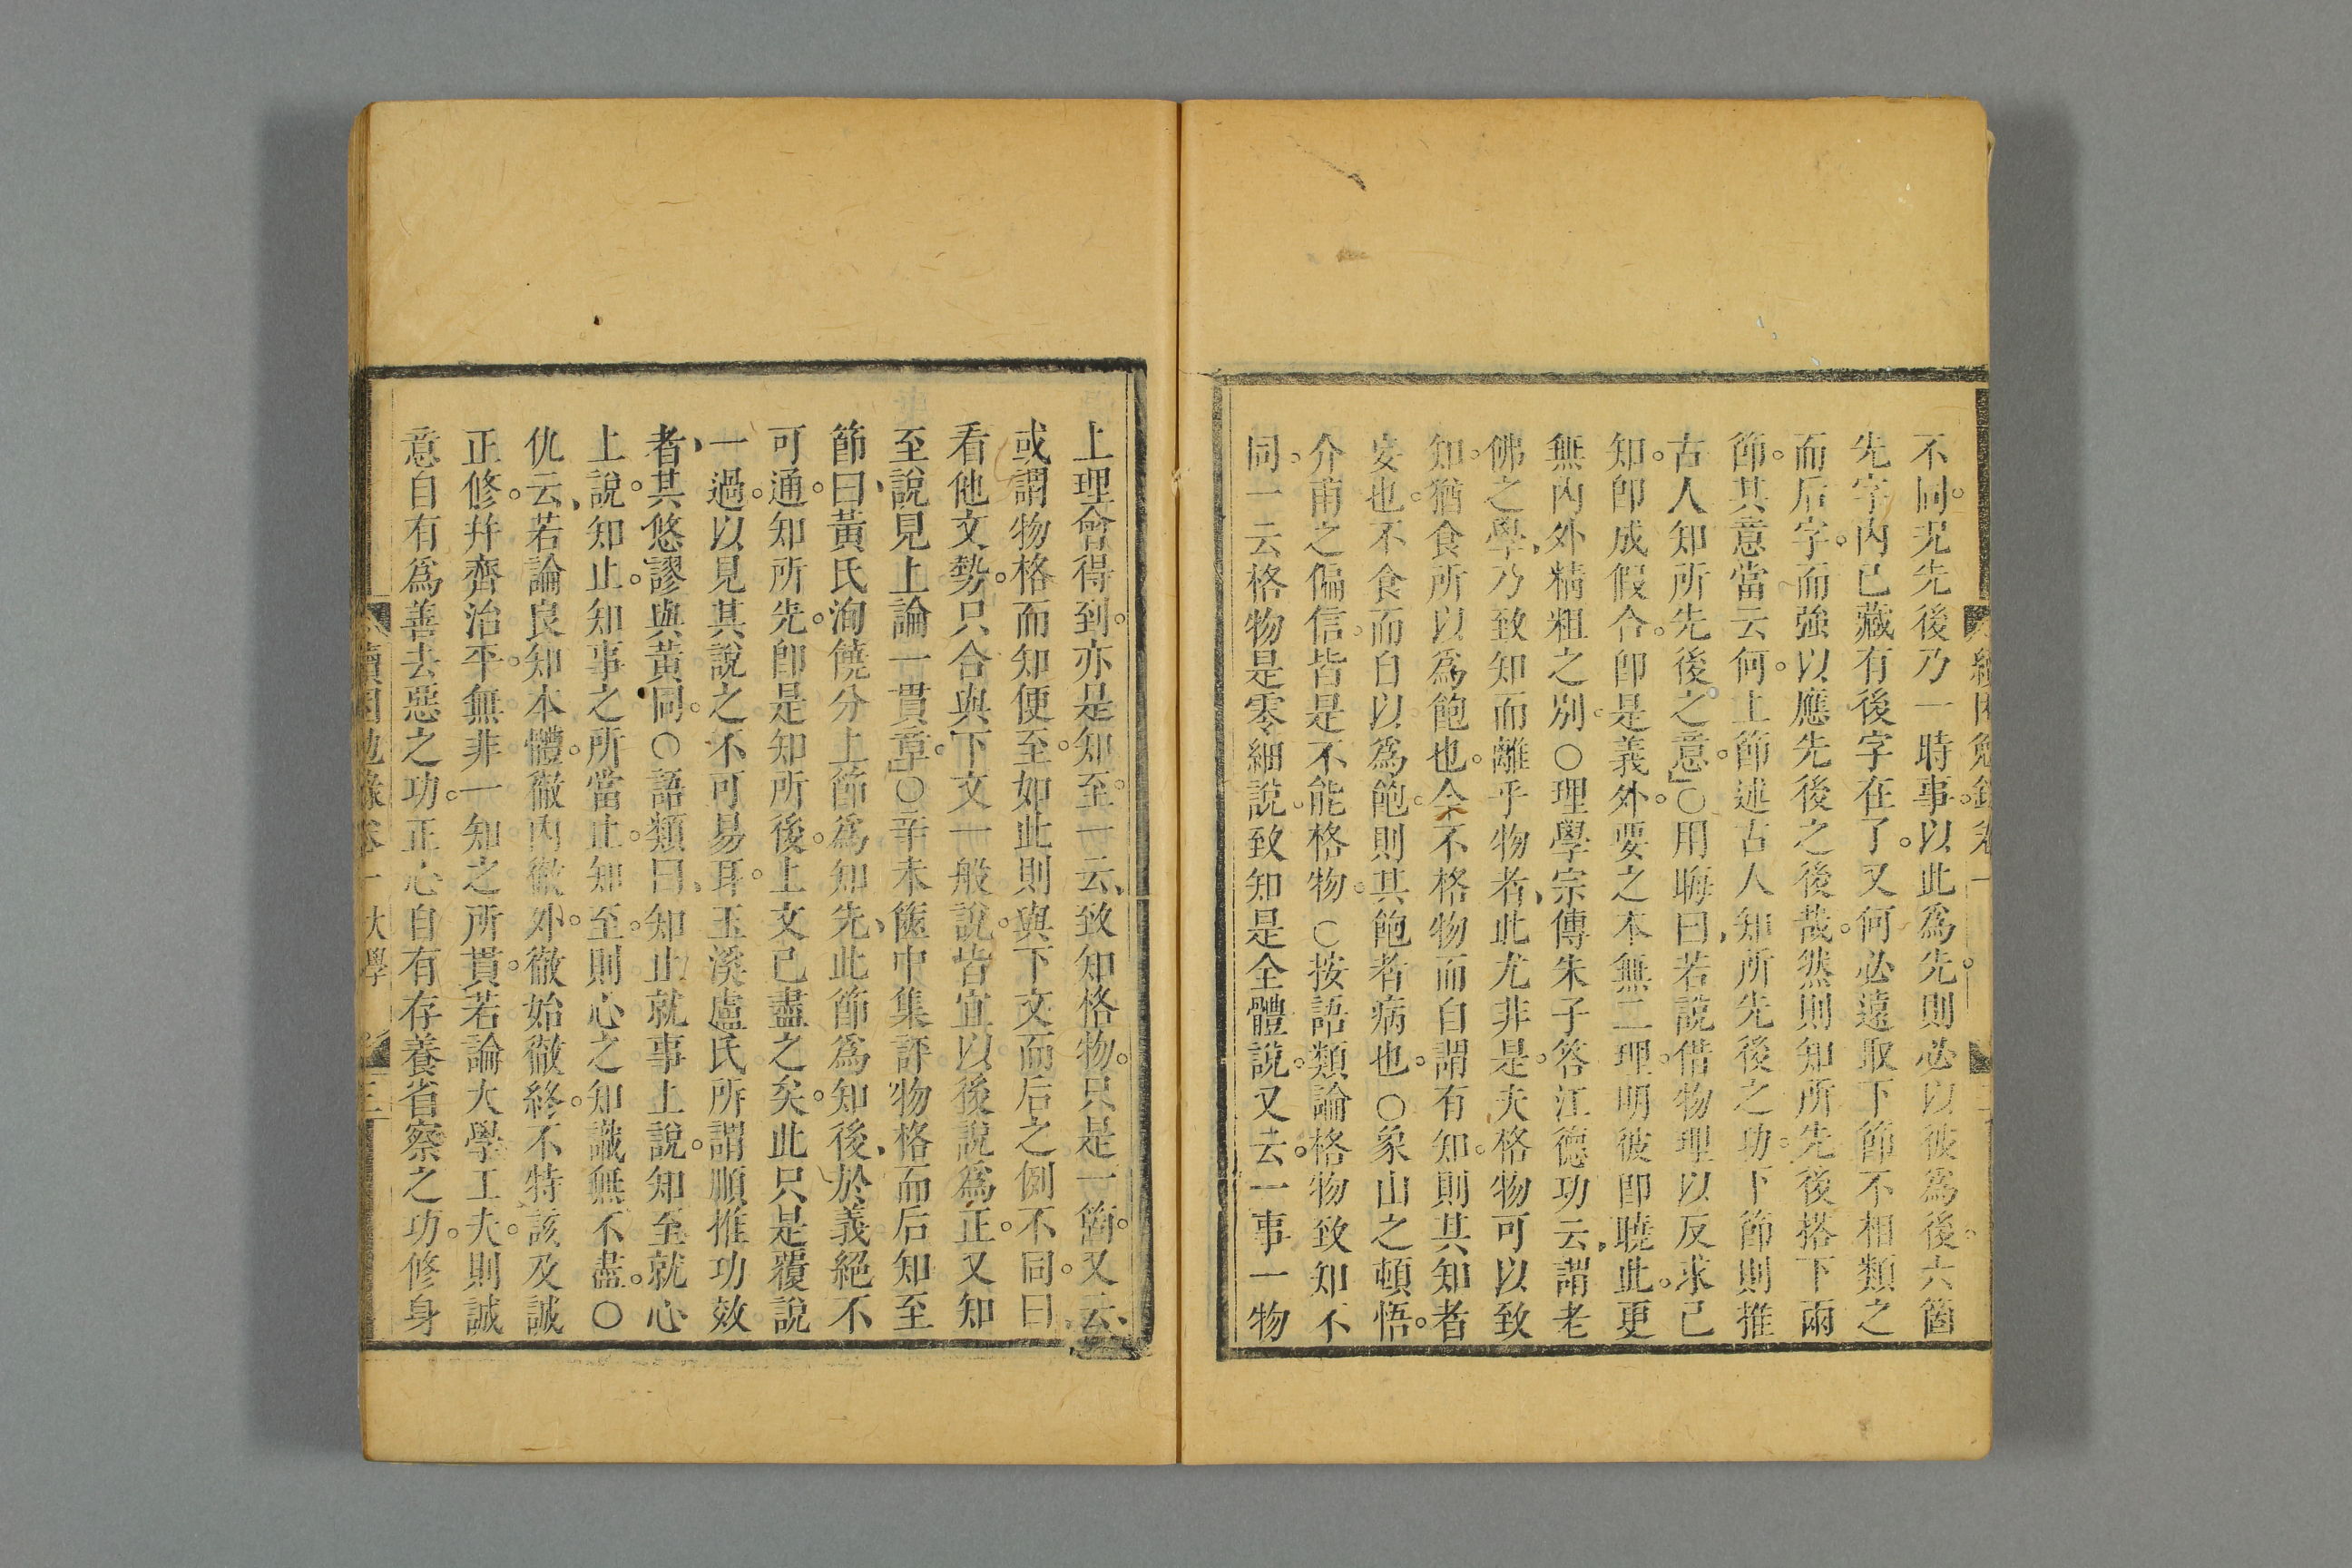 不同况先後乃一時事以此爲先則必以彼爲後六箇
先字內已藏有後字在了又何必遠取下節不相類之
而后字而強以應先後之後哉然則知所先後搭下兩
節其意當云何上節述古人知所先後之功下節則推
古人知所先後之意○用晦曰若說借物理以反求己
知卽成假合卽是義外要之本無二理明彼卽曉此更
無內外精粗之別○理學宗傳朱子答江德功云謂老
佛之學乃致知而離乎物者此尤非是夫格物可以致
知猶食所以爲飽也今不格物而自謂有知則其知者
妄也不食而自以爲飽則其飽者病也○象山之頓悟
介甫之偏信皆是不能格物○按語類論格物致知不
同一云格物是零細說致知是全體說又云一事一物
上理會得到亦是知至一云致知格物只是一箇又云
或謂物格而知便至如此則與下文而后之例不同曰
看他文勢只合與下文一般說皆宜以後說爲正又知
至說見上論一貫章○辛未篋中集評物格而后知至
節曰黃氏洵饒分上節爲知先此節爲知後於義絕不
可通知所先卽是知所後上文已盡之矣此只是覆說
一過以見其說之不可易耳玉溪盧氏所謂順推功效
者其悠謬與黃同○語類曰知止就事上說知至就心
上說知止知事之所當止知至則心之知識無不盡○
仇云若論良知本體徹內徹外徹始徹終不特該及誠
正修幷齊治平無非一知之所貫若論大學工夫則誠
意自有爲善去惡之功正心自有存養省察之功修身
續困勉錄卷一 大學 三